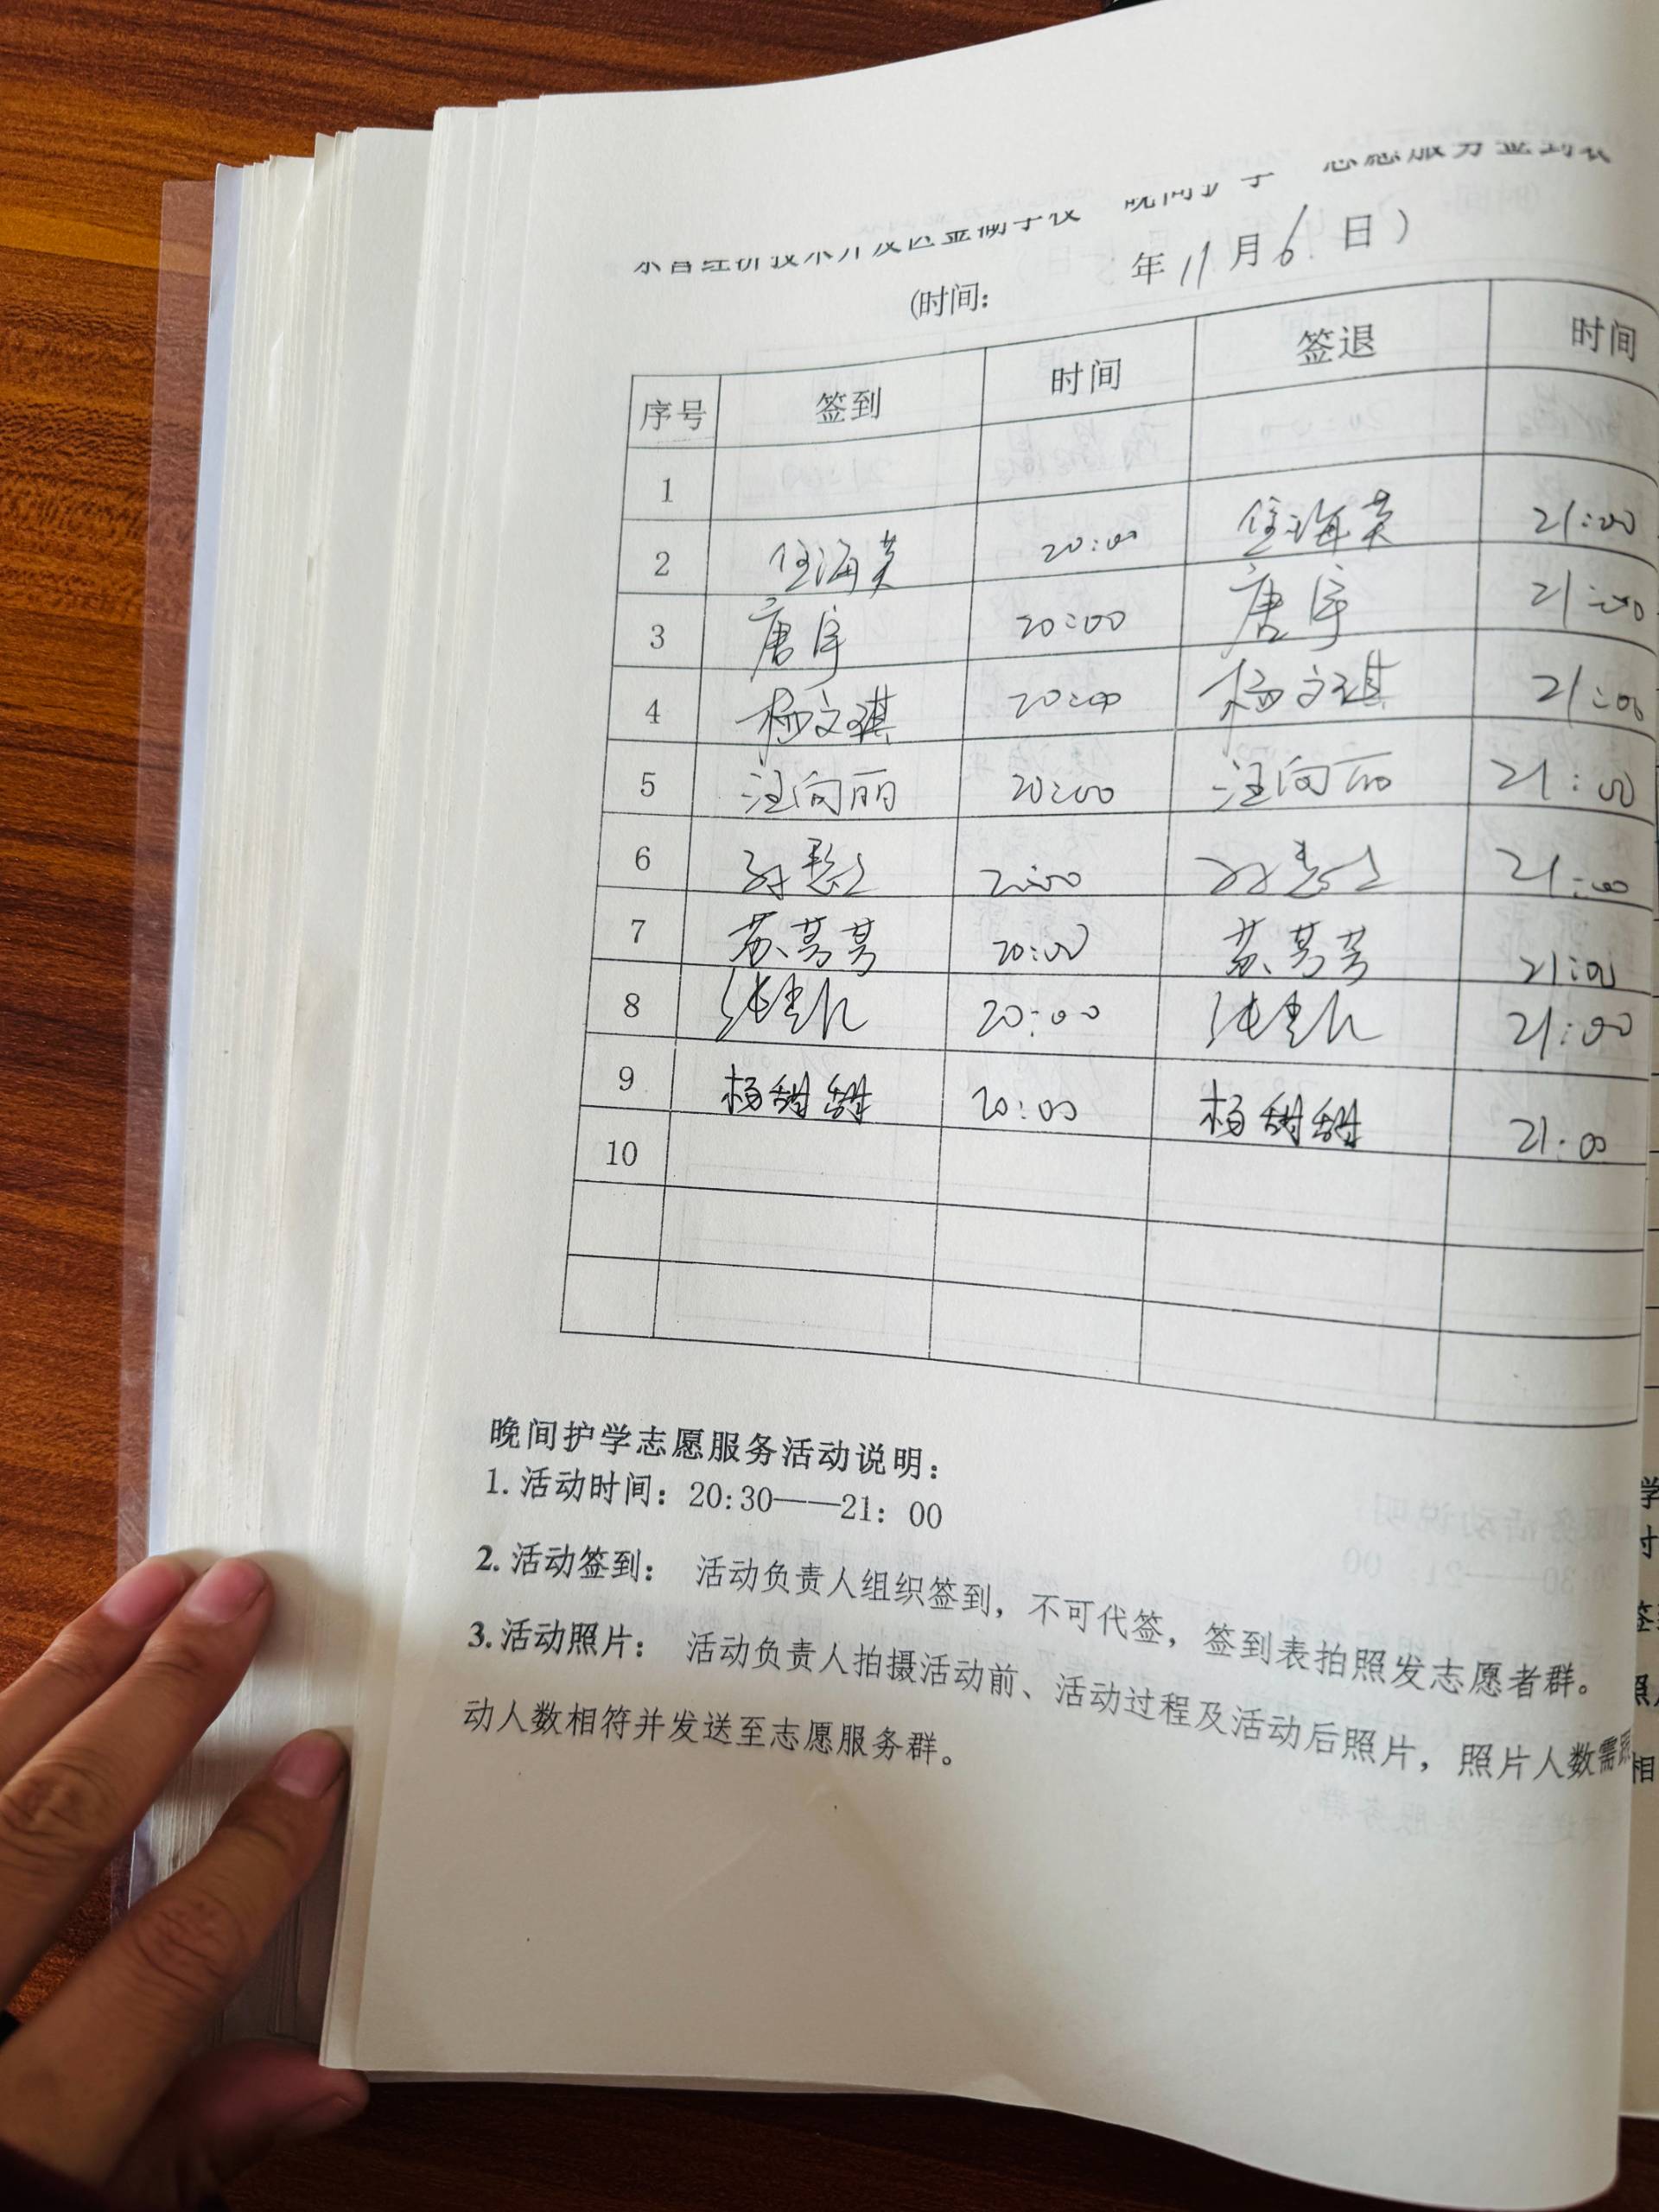 晚间护学 志愿服务签到表
(时间: 年11月6日)
序号 签到 时间 签退 时间
1
2 任海英 20:00 任海英 21:00
3 唐宇 20:00 唐宇 21:00
4 杨文琪 20:00 杨文琪 21:00
5 汪向丽 20:00 汪向丽 21:00
6 20:00 21:00
7 苏芳芳 20:00 苏芳芳 21:00
8 20:00 21:00
9 杨甜甜 20:00 杨甜甜 21:00
10
晚间护学志愿服务活动说明:
1. 活动时间: 20:30——21: 00
2. 活动签到: 活动负责人组织签到, 不可代签, 签到表拍照发志愿者群。
3. 活动照片: 活动负责人拍摄活动前、活动过程及活动后照片, 照片人数需
动人数相符并发送至志愿服务群。